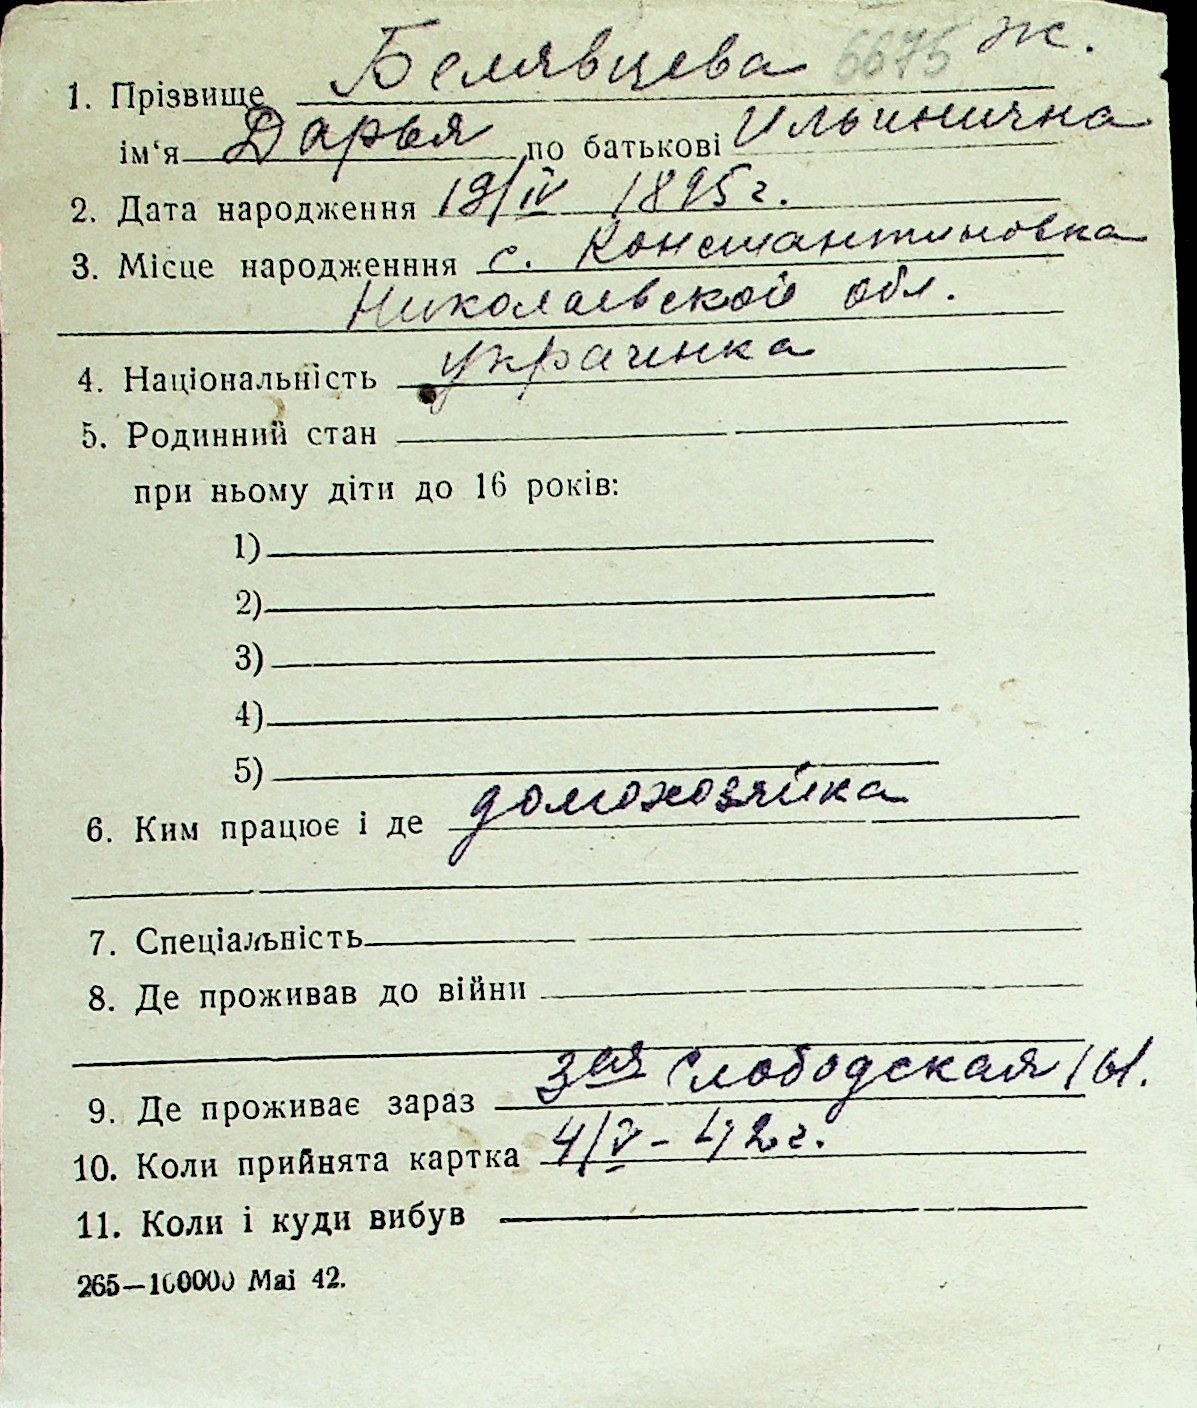 1. Прізвище Белявцева 6675 ж.
ім‘я Дарья по батькові Ильинична
2. Дата народження 19/IV 1895 г.
3. Місце народженння с. Константиновка
Николаевской обл.
4. Національність украинка
5. Родинний стан
при ньому діти до 16 років:
1)
2)
3)
4)
5)
6. Ким працює і де домохозяйка
7. Спеціальність
8. Де проживав до війни
9. Де проживає зараз 3ая Слободская
10. Коли прийнята картка 4/V – 42 г.
11. Коли і куди вибув
265—100000 Mai 42.